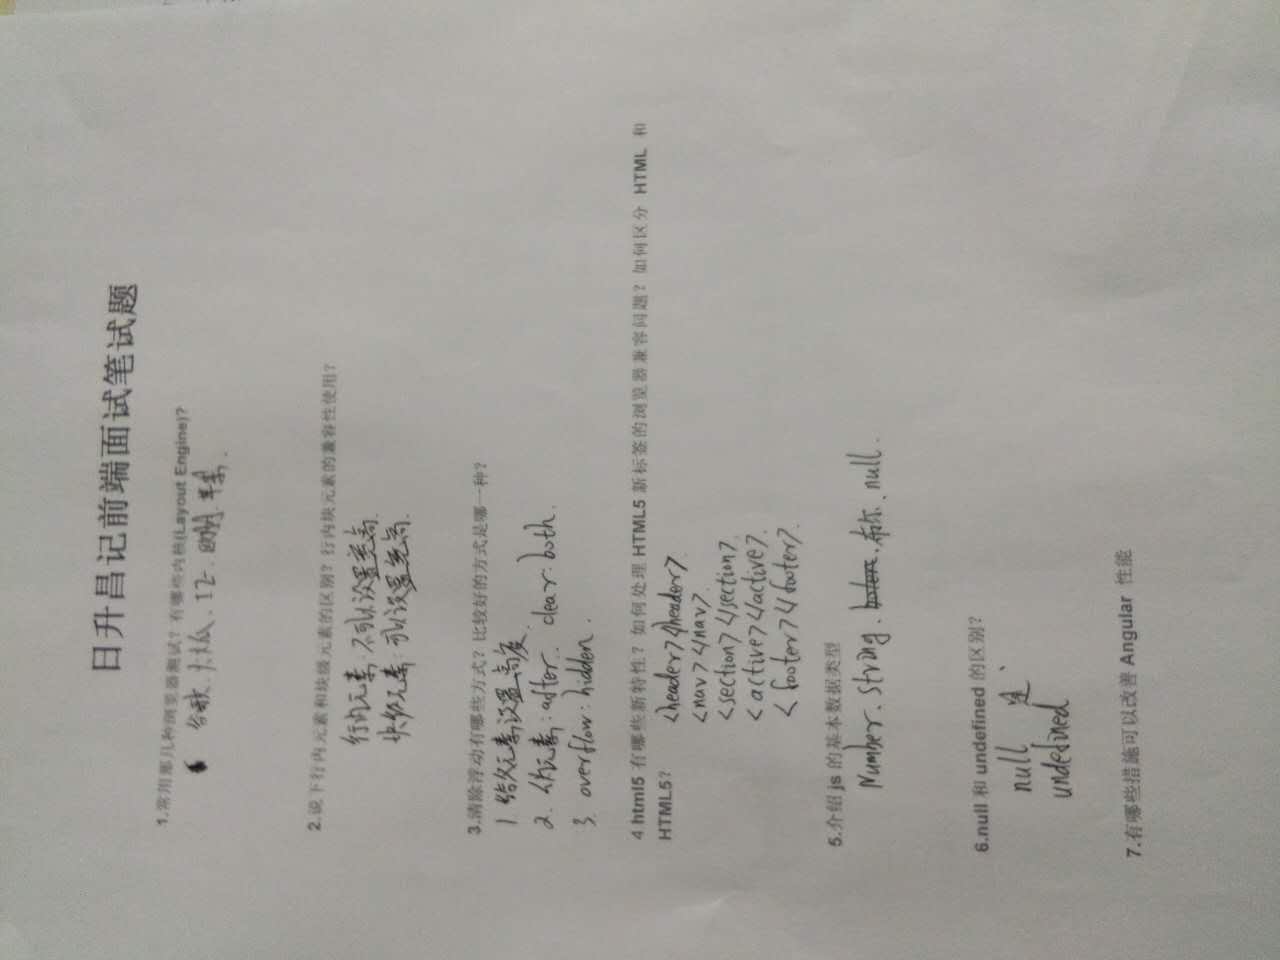 日升昌记前端面试笔试题
1.常用那几种浏览器测试？有哪些内核(Layout Engine)?
谷歌、火狐、IE、
2.说下行内元素和块级元素的区别？行内块元素的兼容性使用？
行内元素：不可以设置宽高
块级元素：可以设置宽高
3.清除浮动有哪些方式？比较好的方式是哪一种？
1 给父元素设置高度
2. 伪元素：after. clear:both.
3. overflow:hidden.
4 html5 有哪些新特性？如何处理 HTML5 新标签的浏览器兼容问题？如何区分 HTML 和
HTML5？
<header></header>
<nav></nav>
<section></section>
<active></active>
<footer></footer>
5.介绍 js 的基本数据类型
Number. String. 布尔. null.
6.null 和 undefined 的区别？
null 空、
undefined
7.有哪些措施可以改善 Angular 性能